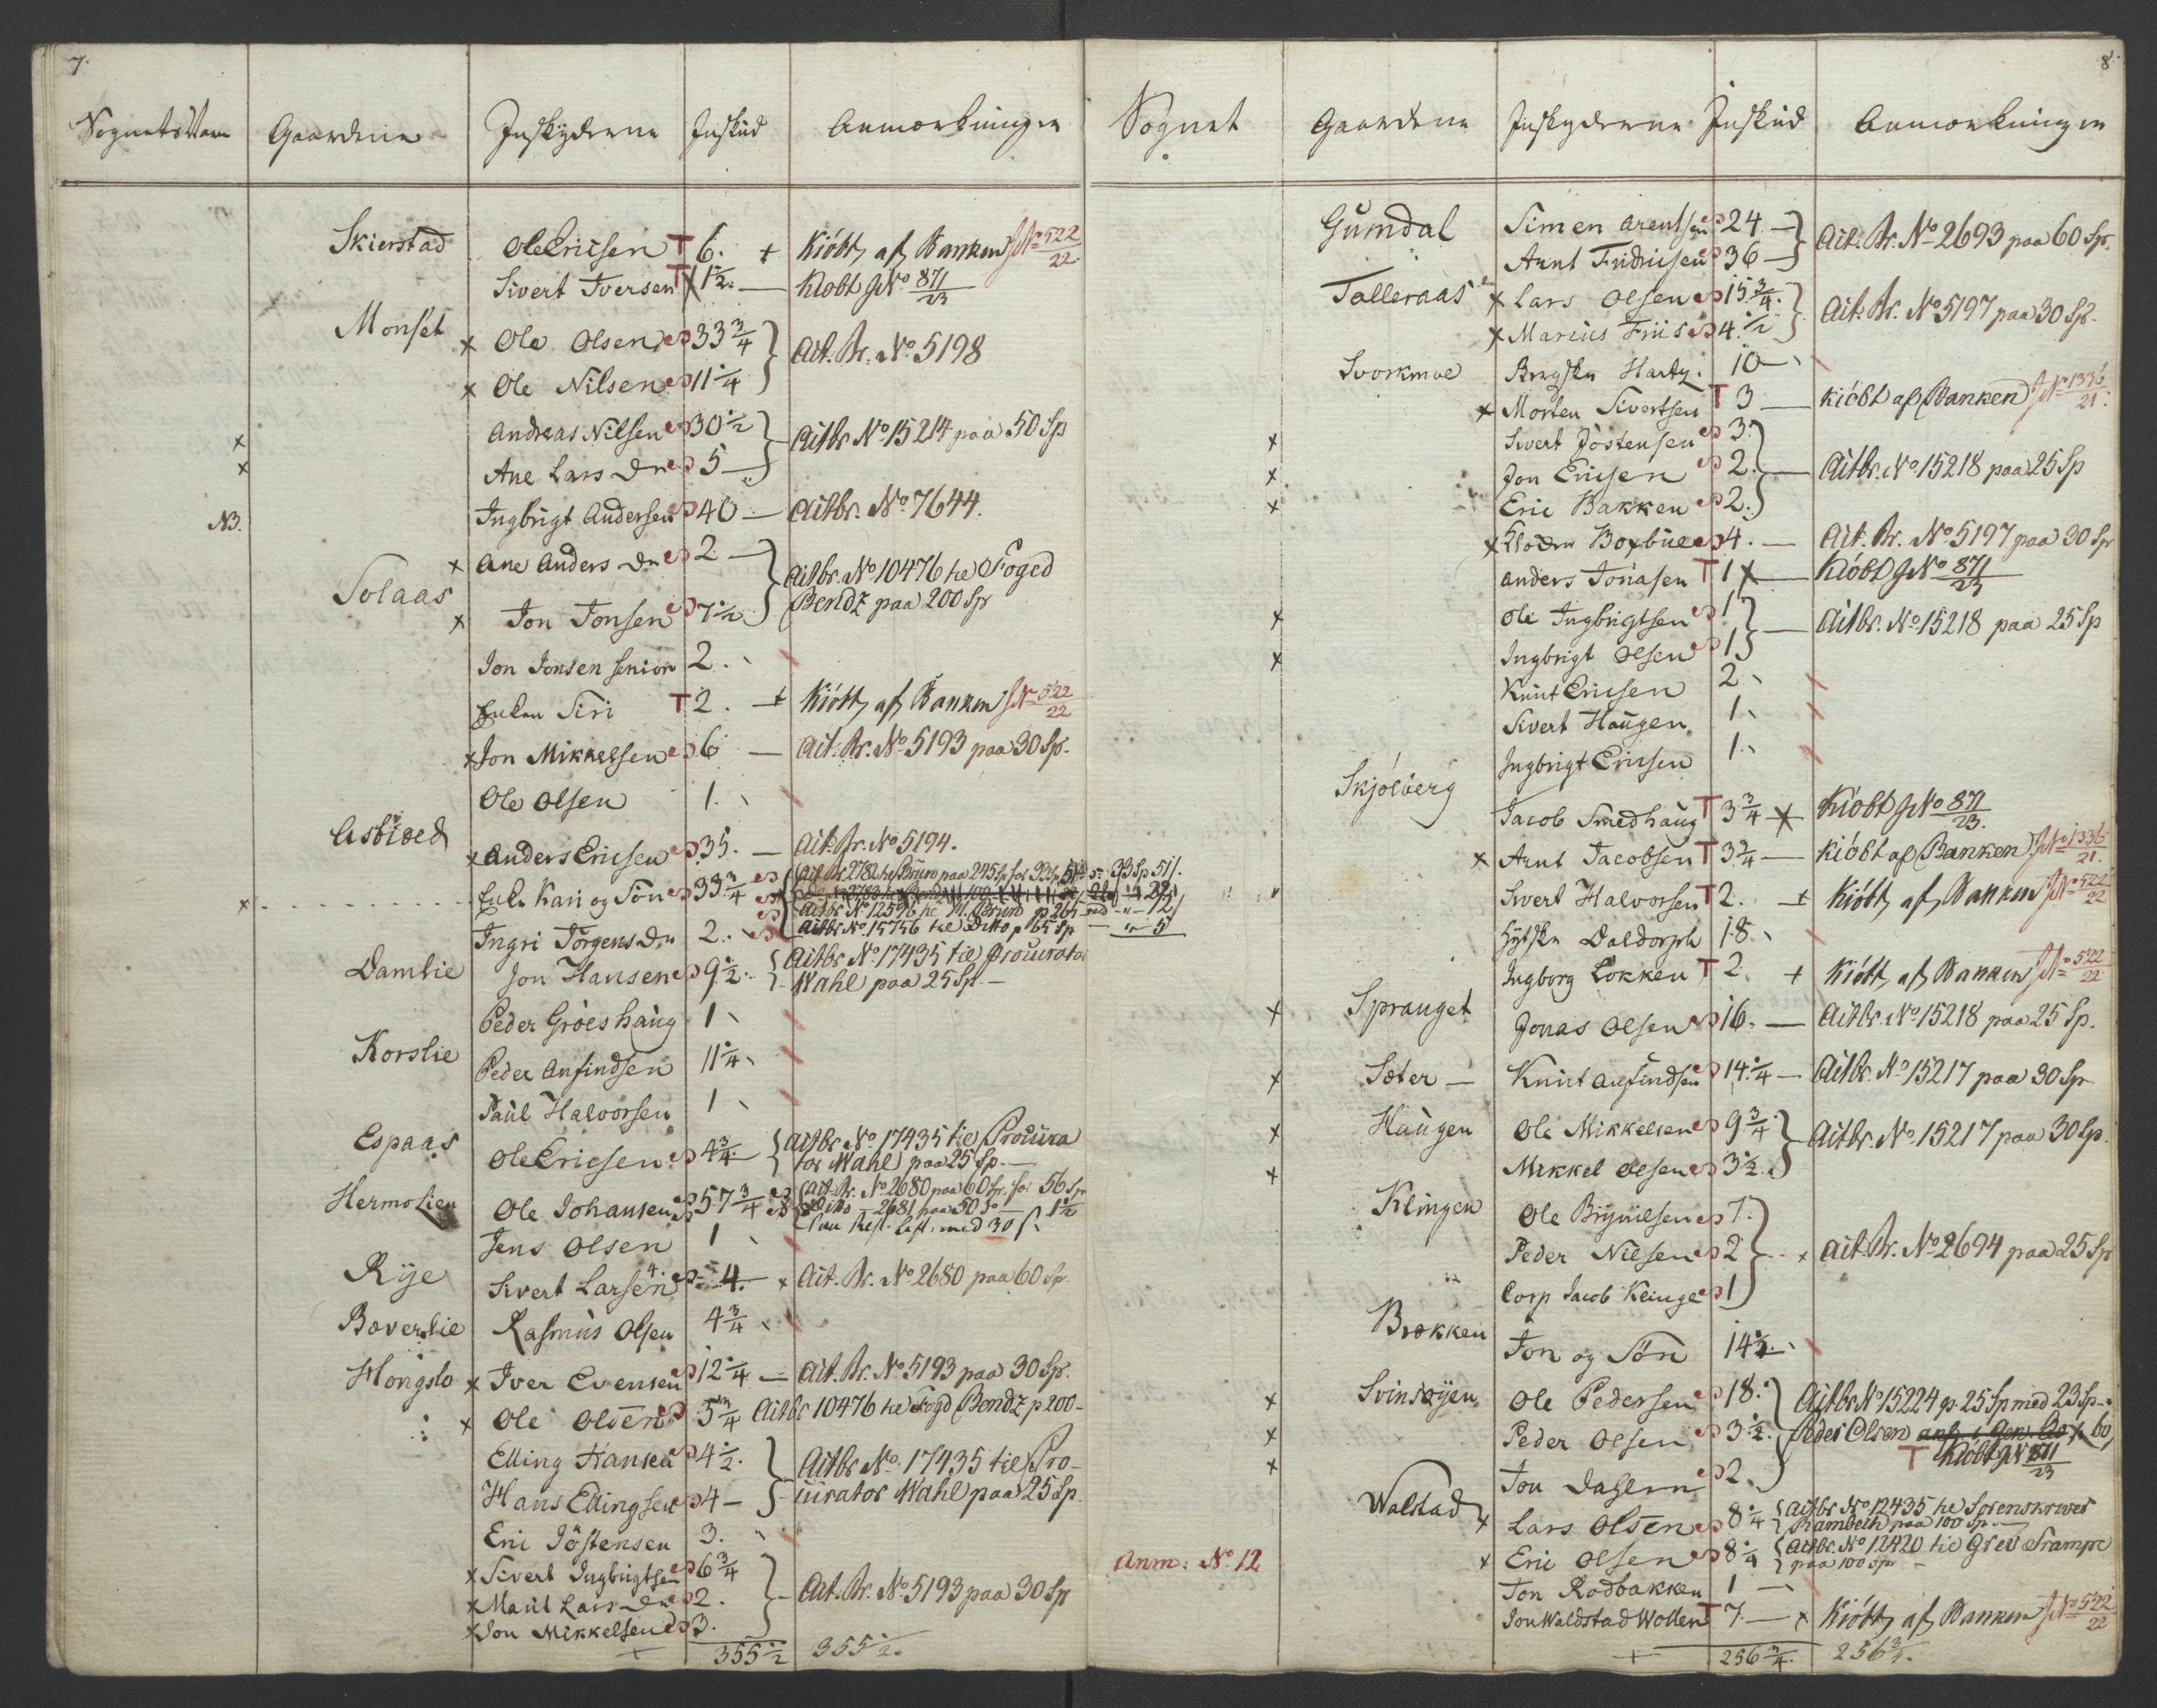 7.
Sognets Navn Gaardene Inskyderne Inskud Anmærkninger
Skierstad Ole Ericsen T 6. + Kiöbt af Banken J No 522/22
Sivert Iversen T 1 1/2. — Kiöbt J No 871/23
Monset x Ole Olsen 33 3/4 } Ait. Br. No 5198
x Ole Nilsen 11 1/4
x Andreas Nilsen 30 1/2 } Aitbr No 15214 paa 50 Sp
x Ane Lars Dr 5 —
NB. Ingbrigt Andersen 40 — Aitbr. No 7644.
x Ane Anders Dr 2 — } Aitbr. No 10476 til Foged
Solaas x Jon Jonsen 7 1/2 Bendz paa 200 Sp
Jon Jonsen senior 2.
Enken Siri T 2. + Kiöbt af Banken J No 522/22
x Jon Mikkelsen 6 — Ait. Br. No 5193 paa 30 Sp.
Ole Olsen 1.
Asbiöed x Anders Ericsen 35. — Ait. Br. No 5194.
x Enke Kari og Sön 33 3/4 Ait Br 2782 til Bruun paa 245 Sp for 33 Sp 51/.
Aitbr No 12596 til M. Bruun p 265
Ingri Törgens Dr 2. Aitbr No. 15756 til Ditto p 65 Sp — " 5
Damlie Jon Hansen 9 1/2. { Aitbr No 17435 til Procurator
Wahl paa 25 Sp. —
Peder Gröeshaug 1
Korslie Peder Anfindsen 11 1/4
Paul Halvorsen 1
Espaas Ole Ericsen 4 3/4 { Aitbr No 17435 til Procura
tor Wahl paa 25 Sp. —
Hermolien Ole Johansen 57 3/4 Ait. Br. No 2680 paa 60 Sp. for 56 Sp
Dito — 2681 paa 50 Do — 1 1/2
med 30 s.
Jens Olsen 1
Rÿe Sivert Larsen 4. x Ait. Br. No 2680 paa 60 Sp
Boverlie Rasmus Olsen 4 3/4
Hongslo x Iver Evensen 12 1/4 — Ait. Br. No 5193 paa 30 Sp.
x Ole Olsen 5 3/4 Aitbr 10476 til Fogd Bendz p 200 —
Elling Hansen 4 1/2. } Aitbr No 17435 til Pro-
Hans Ellingsen 4 — curator Wahl paa 25 Sp.
Eric Jöstensen 3.
x Sivert Ingbrigtsen 6 3/4
x Marit Lars Dr 2. } Ait. Br. No 5193 paa 30 Sp
x Jon Mikkelsen 3.
+ 355 1/2 355 1/2.
8.
Sognet Gaardene Inskyderne Inskud Anmærkninger
Gumdal Simen Arentsen 24. } Ait. Br. No 2693 paa 60 Sp.
Arnt Fridricsen 36 —
Talleraas x Lars Olsen 15 3/4. } Ait. Br. No 5197 paa 30 Sp.
x Marius Friis 4. 1/2
Svorkmoe Bergskr Hartz. 10
x Morten Sivertsen T 3 — Kiöbt af Banken J No 1336/21.
x Sivert Jöstensen 3.
x Jon Ericsen 2. } — Aitbr. No 15218 paa 25 Sp
x Eric Bakken 2.
x Boxbue 4. — Ait. Br. No 5197 paa 30 Sp
Anders Jonasen T 1 — Kiöbt J No 871/23
x Ole Ingbrigtsen 1 } — Aitbr. No 15218 paa 25 Sp
x Ingbrigt Olsen 1
Knut Ericsen 2
Sivert Haugen 1
Ingbrigt Ericsen 1.
Skjölberg Jacob Smedhaug T 3 3/4 Kiöbt J No 871/23.
x Arnt Jacobsen T 3 3/4 — Kiöbt af Banken J No 1336/21.
Sivert Halvorsen T 2. + Kiöbt af Banken J No 522/22
Hytskr Daldorph 18.
Ingborg Lokken T 2. + Kiöbt af Banken J No 522/22
x Sprauget Jonas Olsen 16. — Aitbr. No 15218 paa 25 Sp.
x Sæter — Knut Anfindsen 14 1/4 — Aitbr. No 15217 paa 30 Sp
x Haugen Ole Mikkelsen 9 3/4 } Aitbr. No 15217 paa 30 Sp.
x Mikkel Olsen 3 1/2.
Klingen Ole Brynilsen 7.
Peder Nielsen 2 } x Ait. Br. No 2694 paa 25 Sp
Corp Jacob Klinge 1
Brokken Jon og Sön 14 1/2.
x Svinsøyen Ole Pedersen 18. Aitbr No 15224 p. 25 Sp med 23 Sp
x Peder Olsen 3 1/2. Peder Olsen
x Jon Dahlen 2. T Kiöbt J No 871/23
Walstad x Lars Olsen 8 1/4 { Aitbr No 12435 til Sorenskriver
Rambech paa 100 Sp —
Anm: No 12 x Eric Olsen 8 1/4 { Aitbr. No 12420 til Grev Trampe
paa 100 Sp —
Jon Rodbakken 1 —
Jon Waldstad Wollen T 7. — x Kiöbt af Banken J No 522/22
+ 256 3/4. 256 3/4.